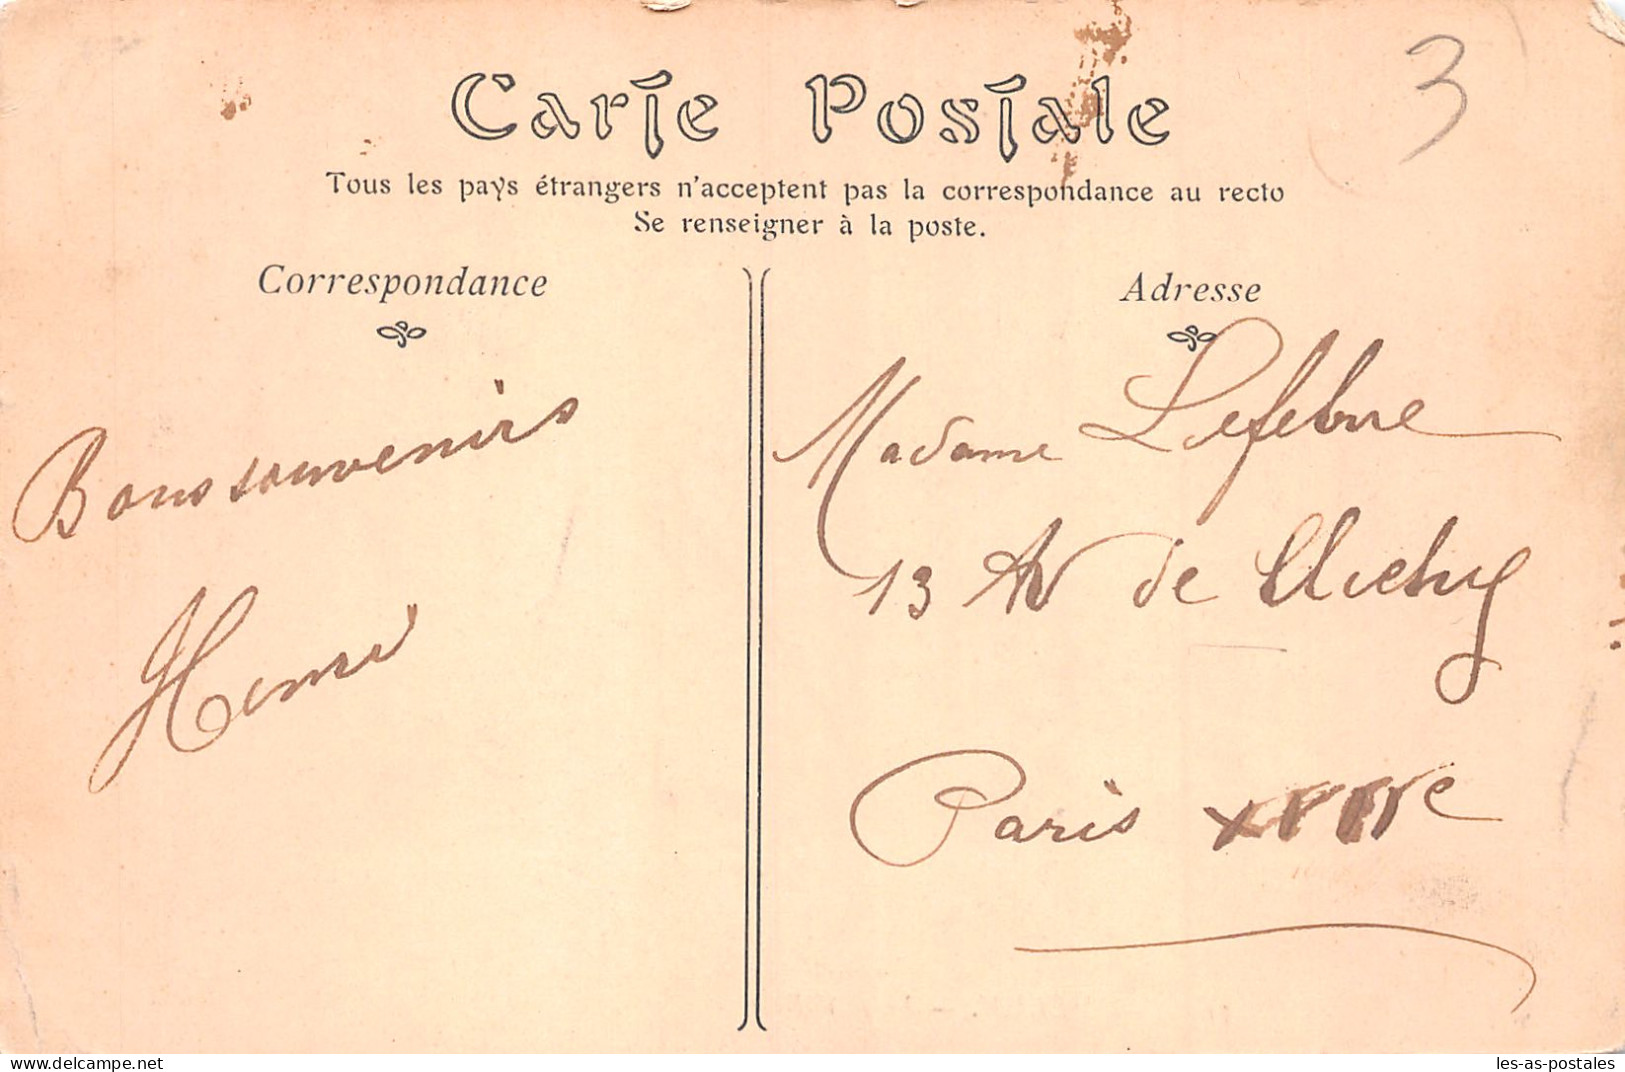 3
Carte Postale
Tous les pays étrangers n'acceptent pas la correspondance au recto
Se renseigner à la poste.
Correspondance
Bons souvenirs
Henri
Adresse
Madame Lefebvre
13 Av de Clichy
Paris
delcampe.net
les-as-postales